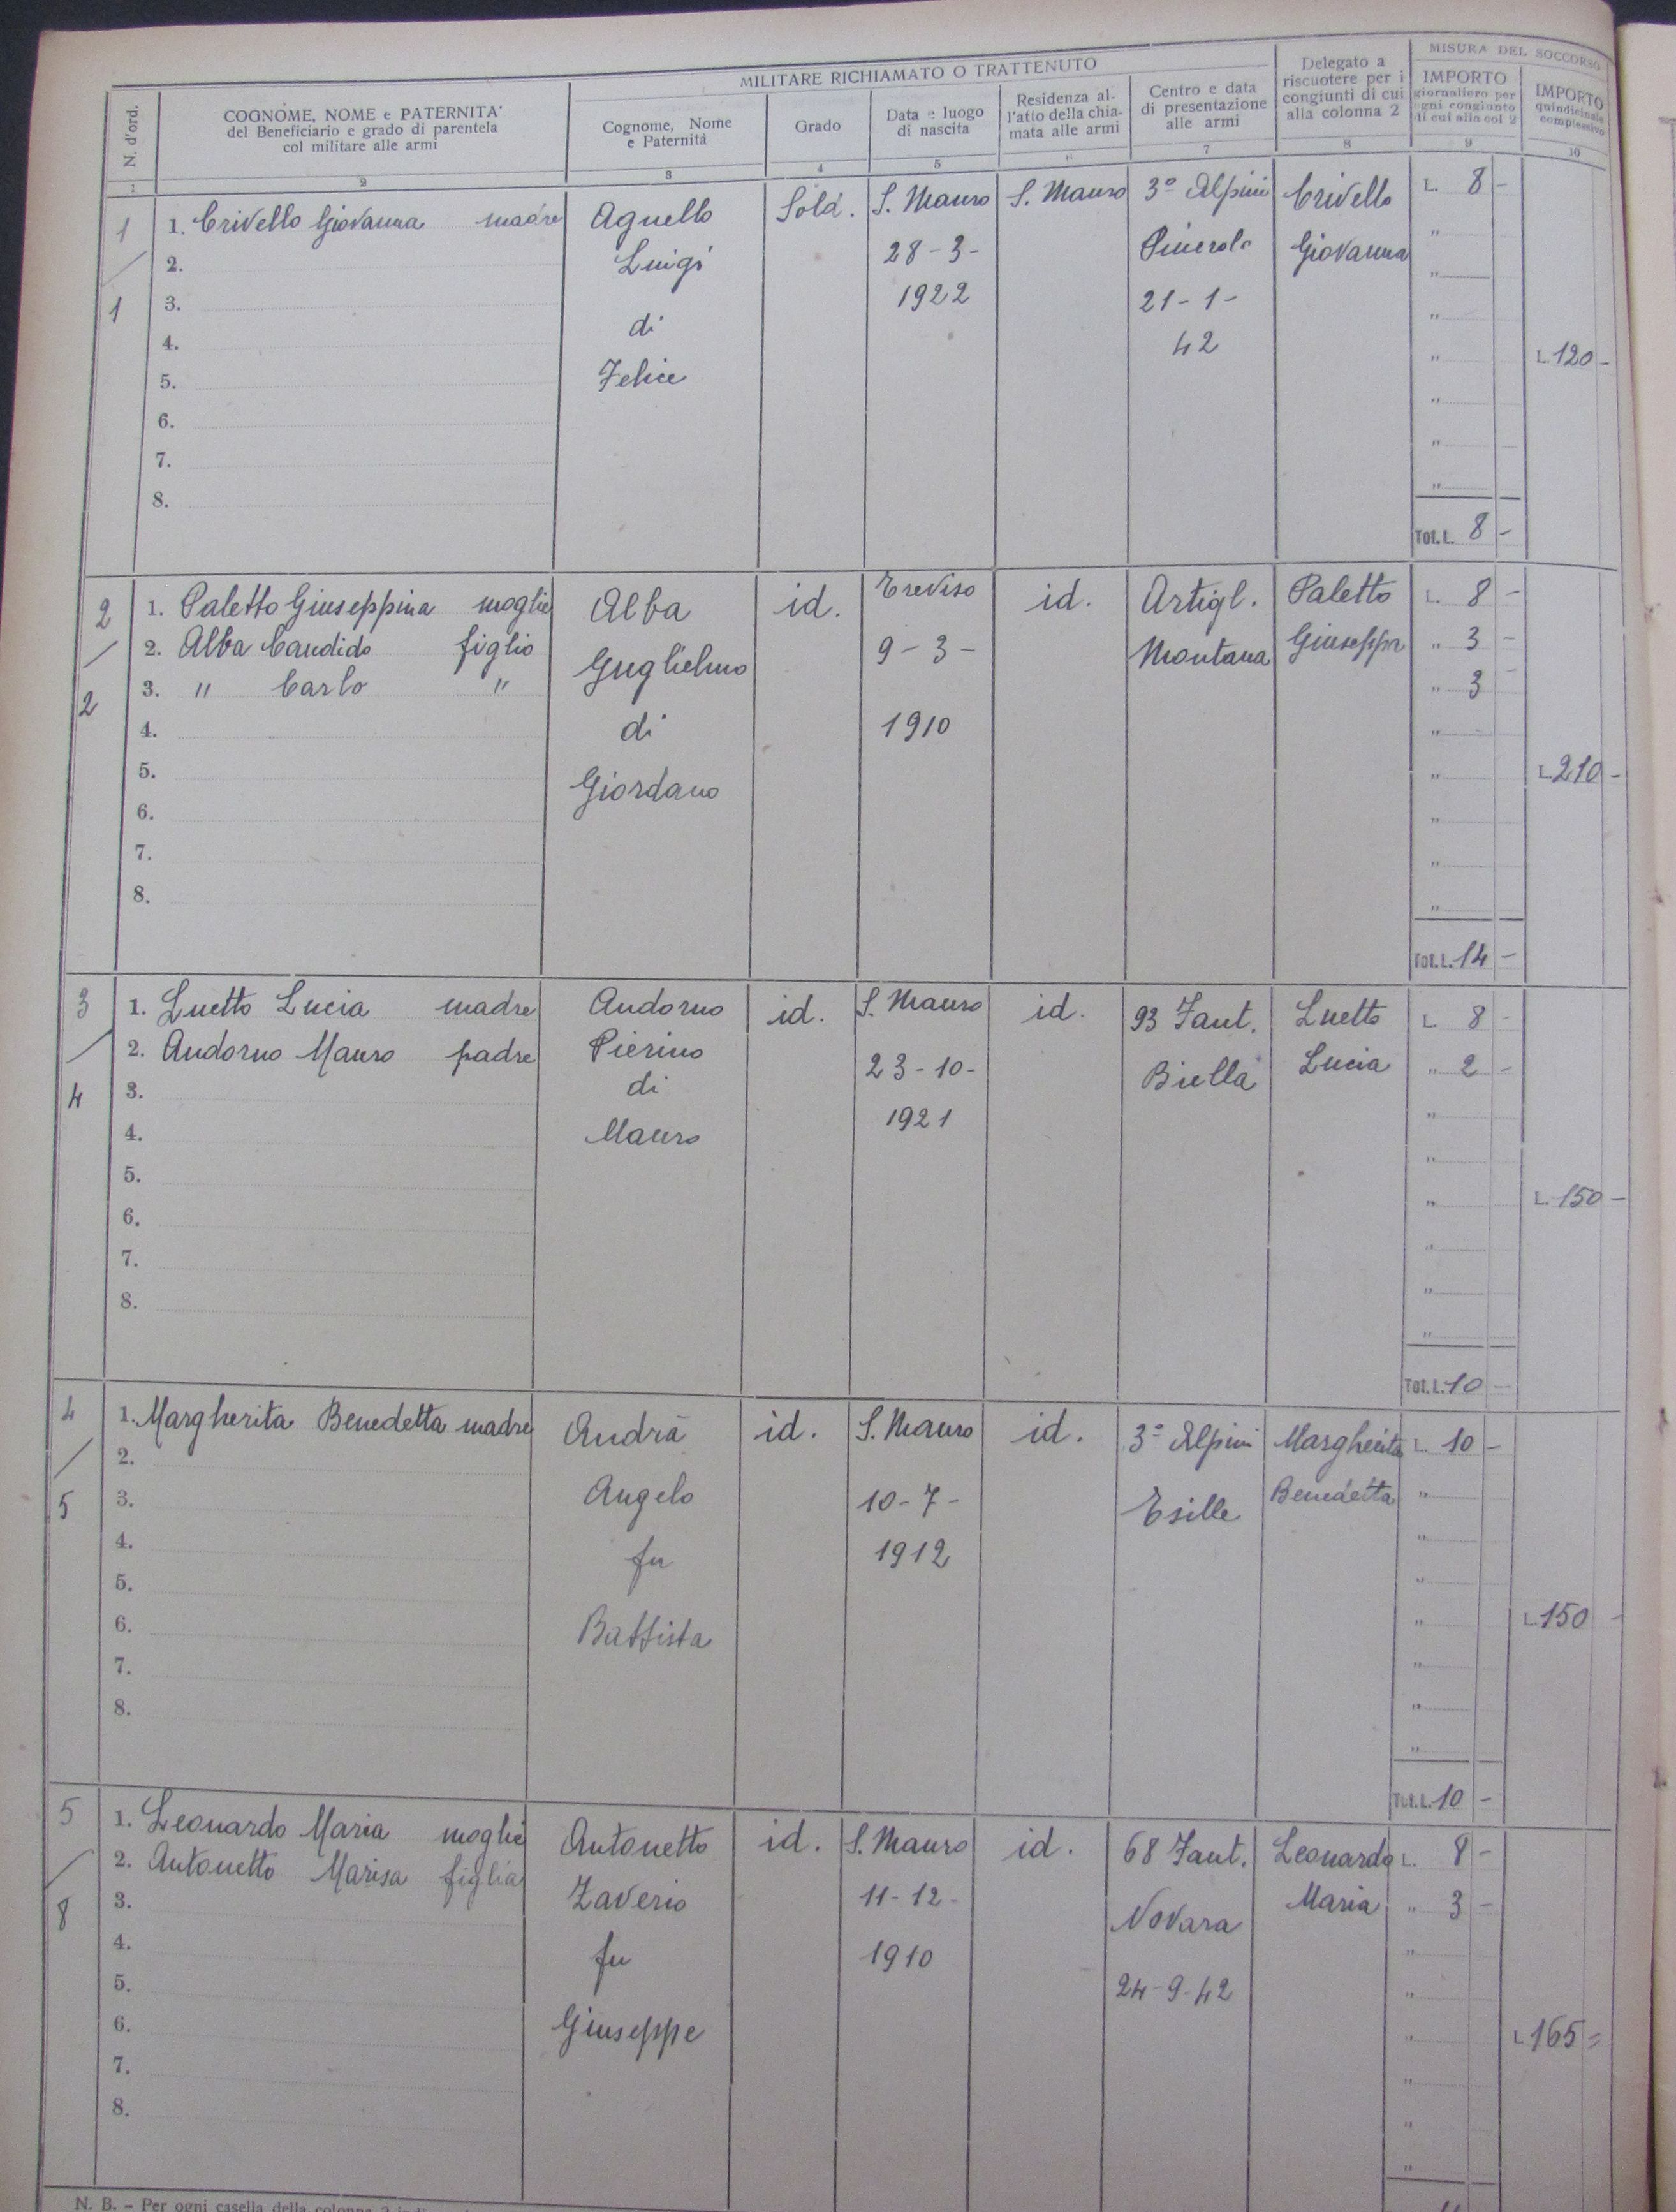 MILITARE RICHIAMATO O TRATTENUTO
MISURA DEL SOCCORSO
N. d'ord.
COGNOME, NOME e PATERNITA'
del Beneficiario e grado di parentela
col militare alle armi
Cognome, Nome
e Paternità
Grado
Data e luogo
di nascita
Residenza al-
l'atto della chia-
mata alle armi
Centro e data
di presentazione
alle armi
Delegato a
riscuotere per i
congiunti di cui
alla colonna 2
IMPORTO
giornaliero per
ogni congiunto
di cui alla col 2
IMPORTO
quindicinale
complessivo
1 2 3 4 5 6 7 8 9 10
1/1
1. Crivello Giovanna madre
2.
3.
4.
5.
6.
7.
8.
Agnello
Luigi
di
Felice
Sold.
S. Mauro
28-3-
1922
S. Mauro
3º Alpini
Pinerolo
21-1-
42
Crivello
Giovanna
L. 8 -
"
"
"
"
"
"
"
Tot. L. 8 -
L. 120 -
2/2
1. Paletto Giuseppina moglie
2. Alba Candido figlio
3. " Carlo "
4.
5.
6.
7.
8.
Alba
Guglielmo
di
Giordano
id.
Treviso
9-3-
1910
id.
Artigl.
Montana
Paletto
Giuseppa
L. 8 -
" 3 -
" 3 -
"
"
"
"
"
Tot. L. 14 -
L. 210 -
3/4
1. Luetto Lucia madre
2. Andorno Mauro padre
3.
4.
5.
6.
7.
8.
Andorno
Pierino
di
Mauro
id.
S. Mauro
23-10-
1921
id.
93 Fant.
Biella
Luetto
Lucia
L. 8 -
" 2 -
"
"
"
"
"
"
Tot. L. 10 -
L. 150 -
4/5
1. Margherita Benedetta madre
2.
3.
4.
5.
6.
7.
8.
Andrà
Angelo
fu
Battista
id.
S. Mauro
10-7-
1912
id.
3º Alpini
Esille
Margherita
Benedetta
L. 10 -
"
"
"
"
"
"
"
Tot. L. 10 -
L. 150 -
5/8
1. Leonardo Maria moglie
2. Antonetto Marisa figlia
3.
4.
5.
6.
7.
8.
Antonetto
Zaverio
fu
Giuseppe
id.
S. Mauro
11-12-
1910
id.
68 Fant.
Novara
24-9-42
Leonardo
Maria
L. 8 -
" 3 -
"
"
"
"
"
"
L. 165 =
N. B. - Per ogni casella della colonna 2